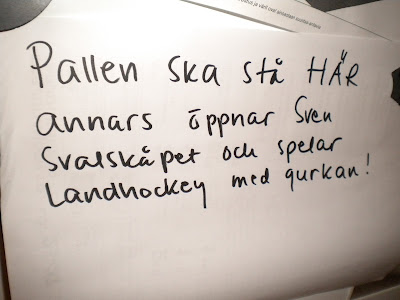 Pallen ska stå HÄR
annars öppnar Sven
Svalskåpet och spelar
Landhockey med gurkan!